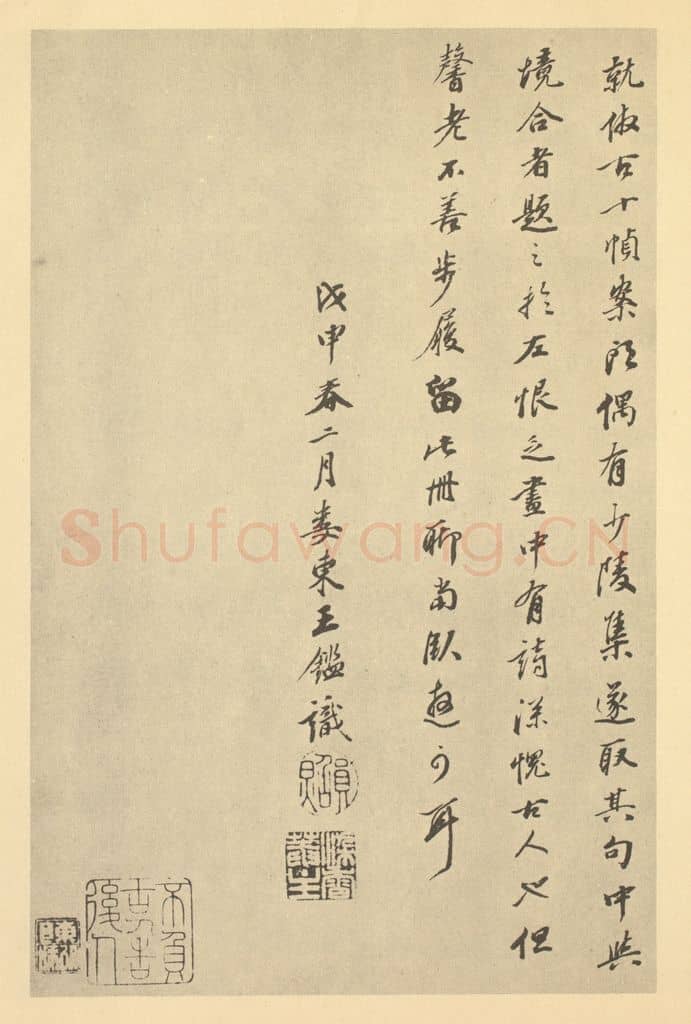 就倣古十幀案頭偶有少陵集遂取其句中與
境合者題之於左恨乏畫中有詩深愧古人也但
馨老不善步履留此冊聊當臥遊可耳
戊申春二月婁東王鑑識
員照
不負古人告後人
Shufawang.CN